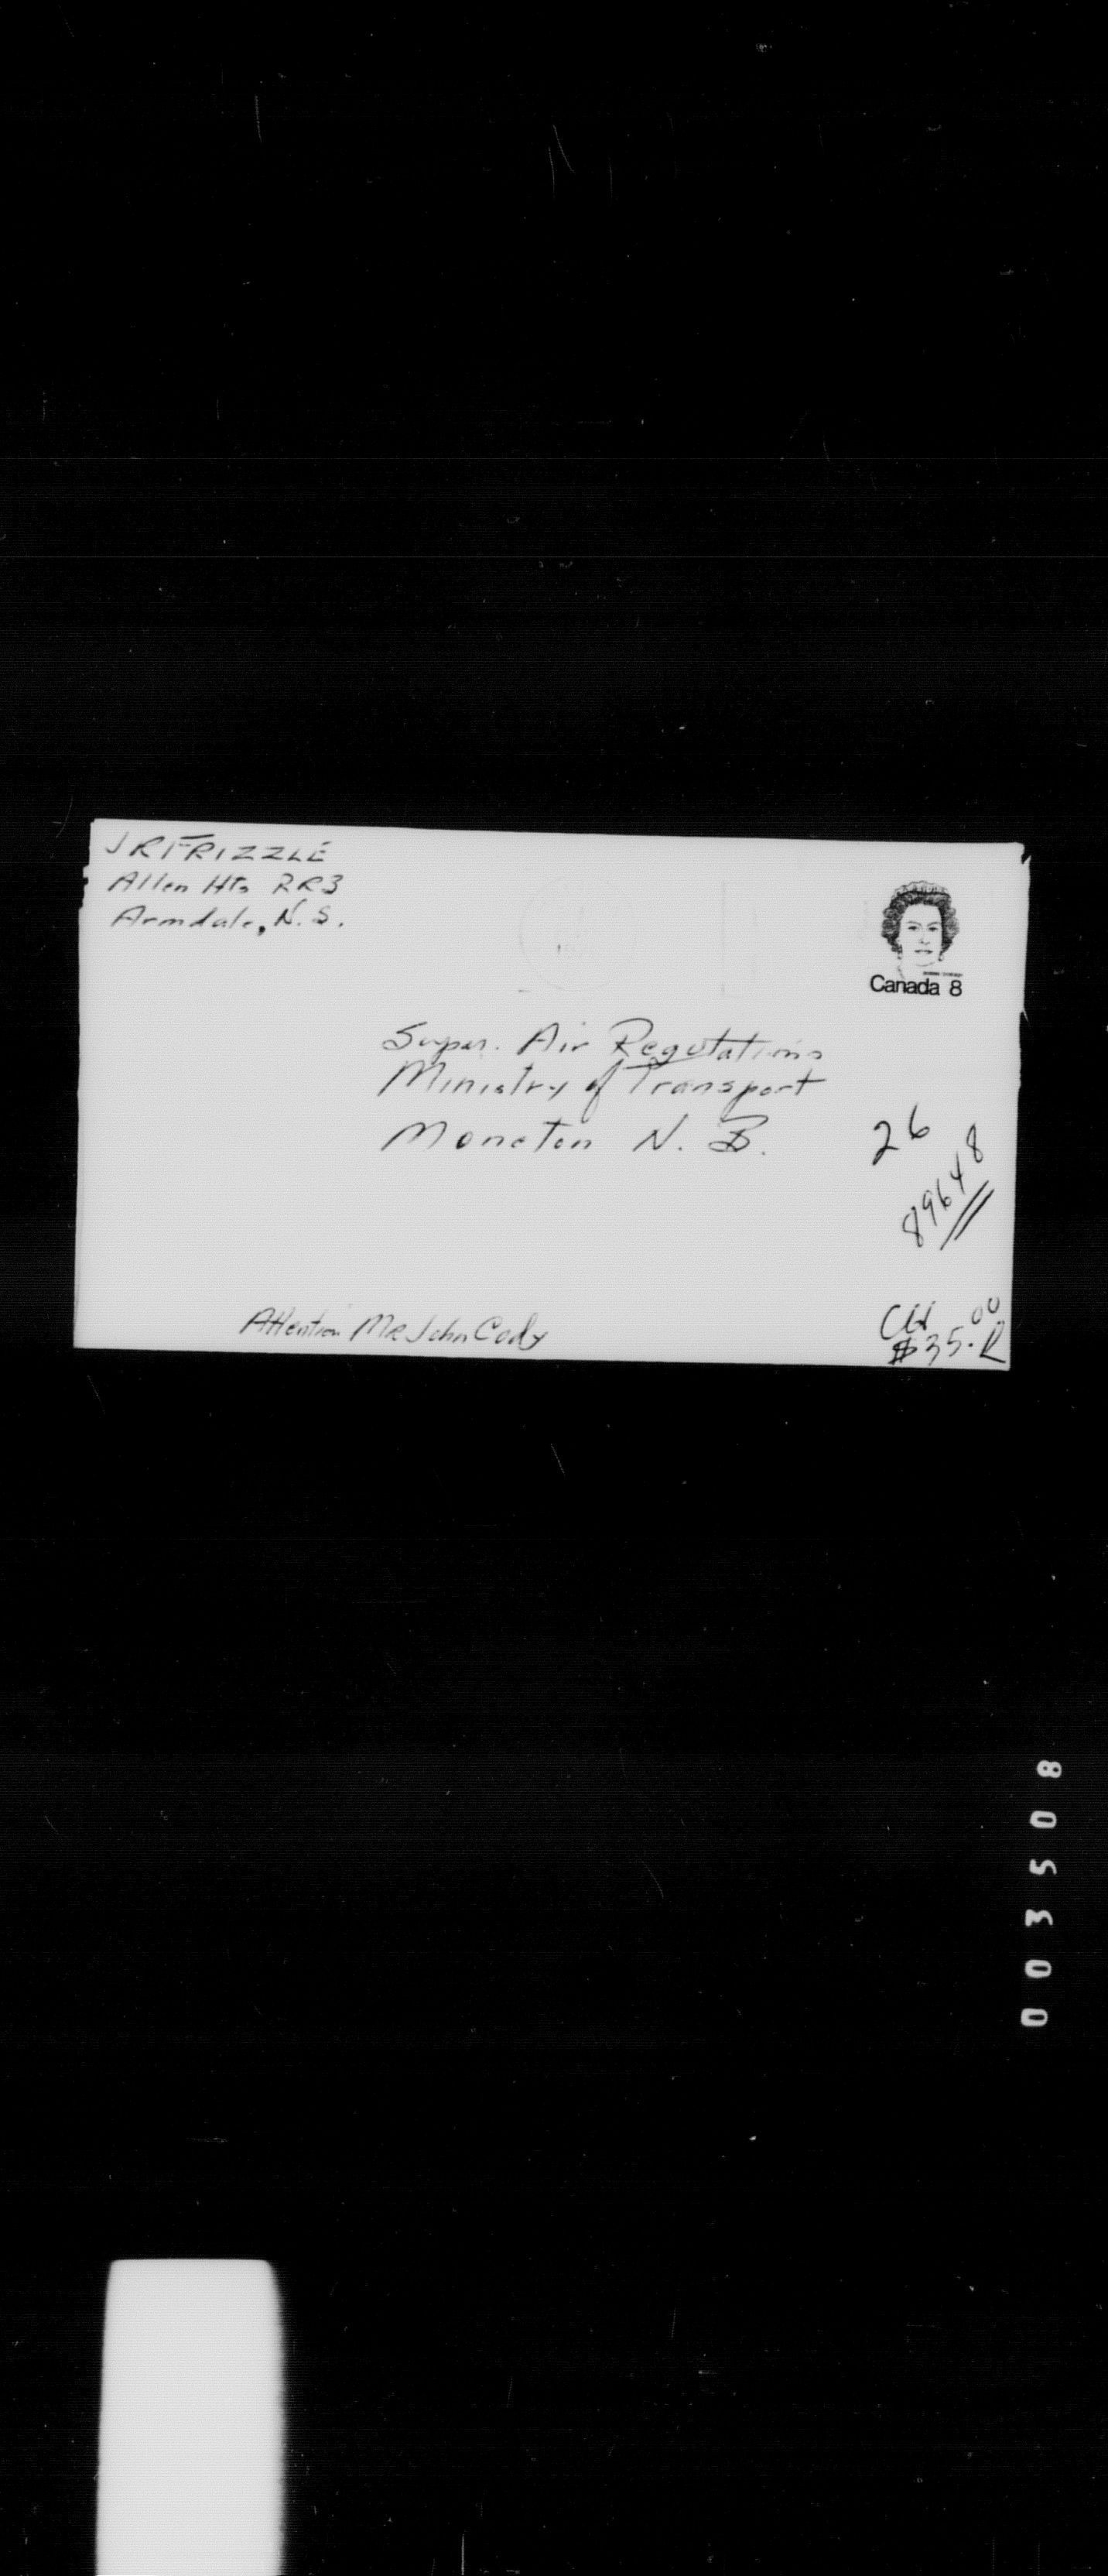 JRFRIZZLE
Allen Hts RR3
Armdale, N.S.
Canada 8
Super. Air Regulations
Ministry of Transport
Moncton N. B.
26
89648
Attention Mr John Cody
$35.00
003508